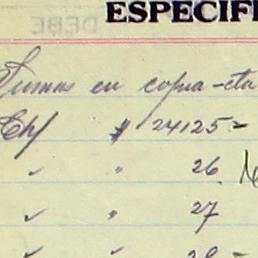 ESPECIFI
Sumas en copia-cta
Ch/ " 24125=
" " 26
" " 27
" " 28 =